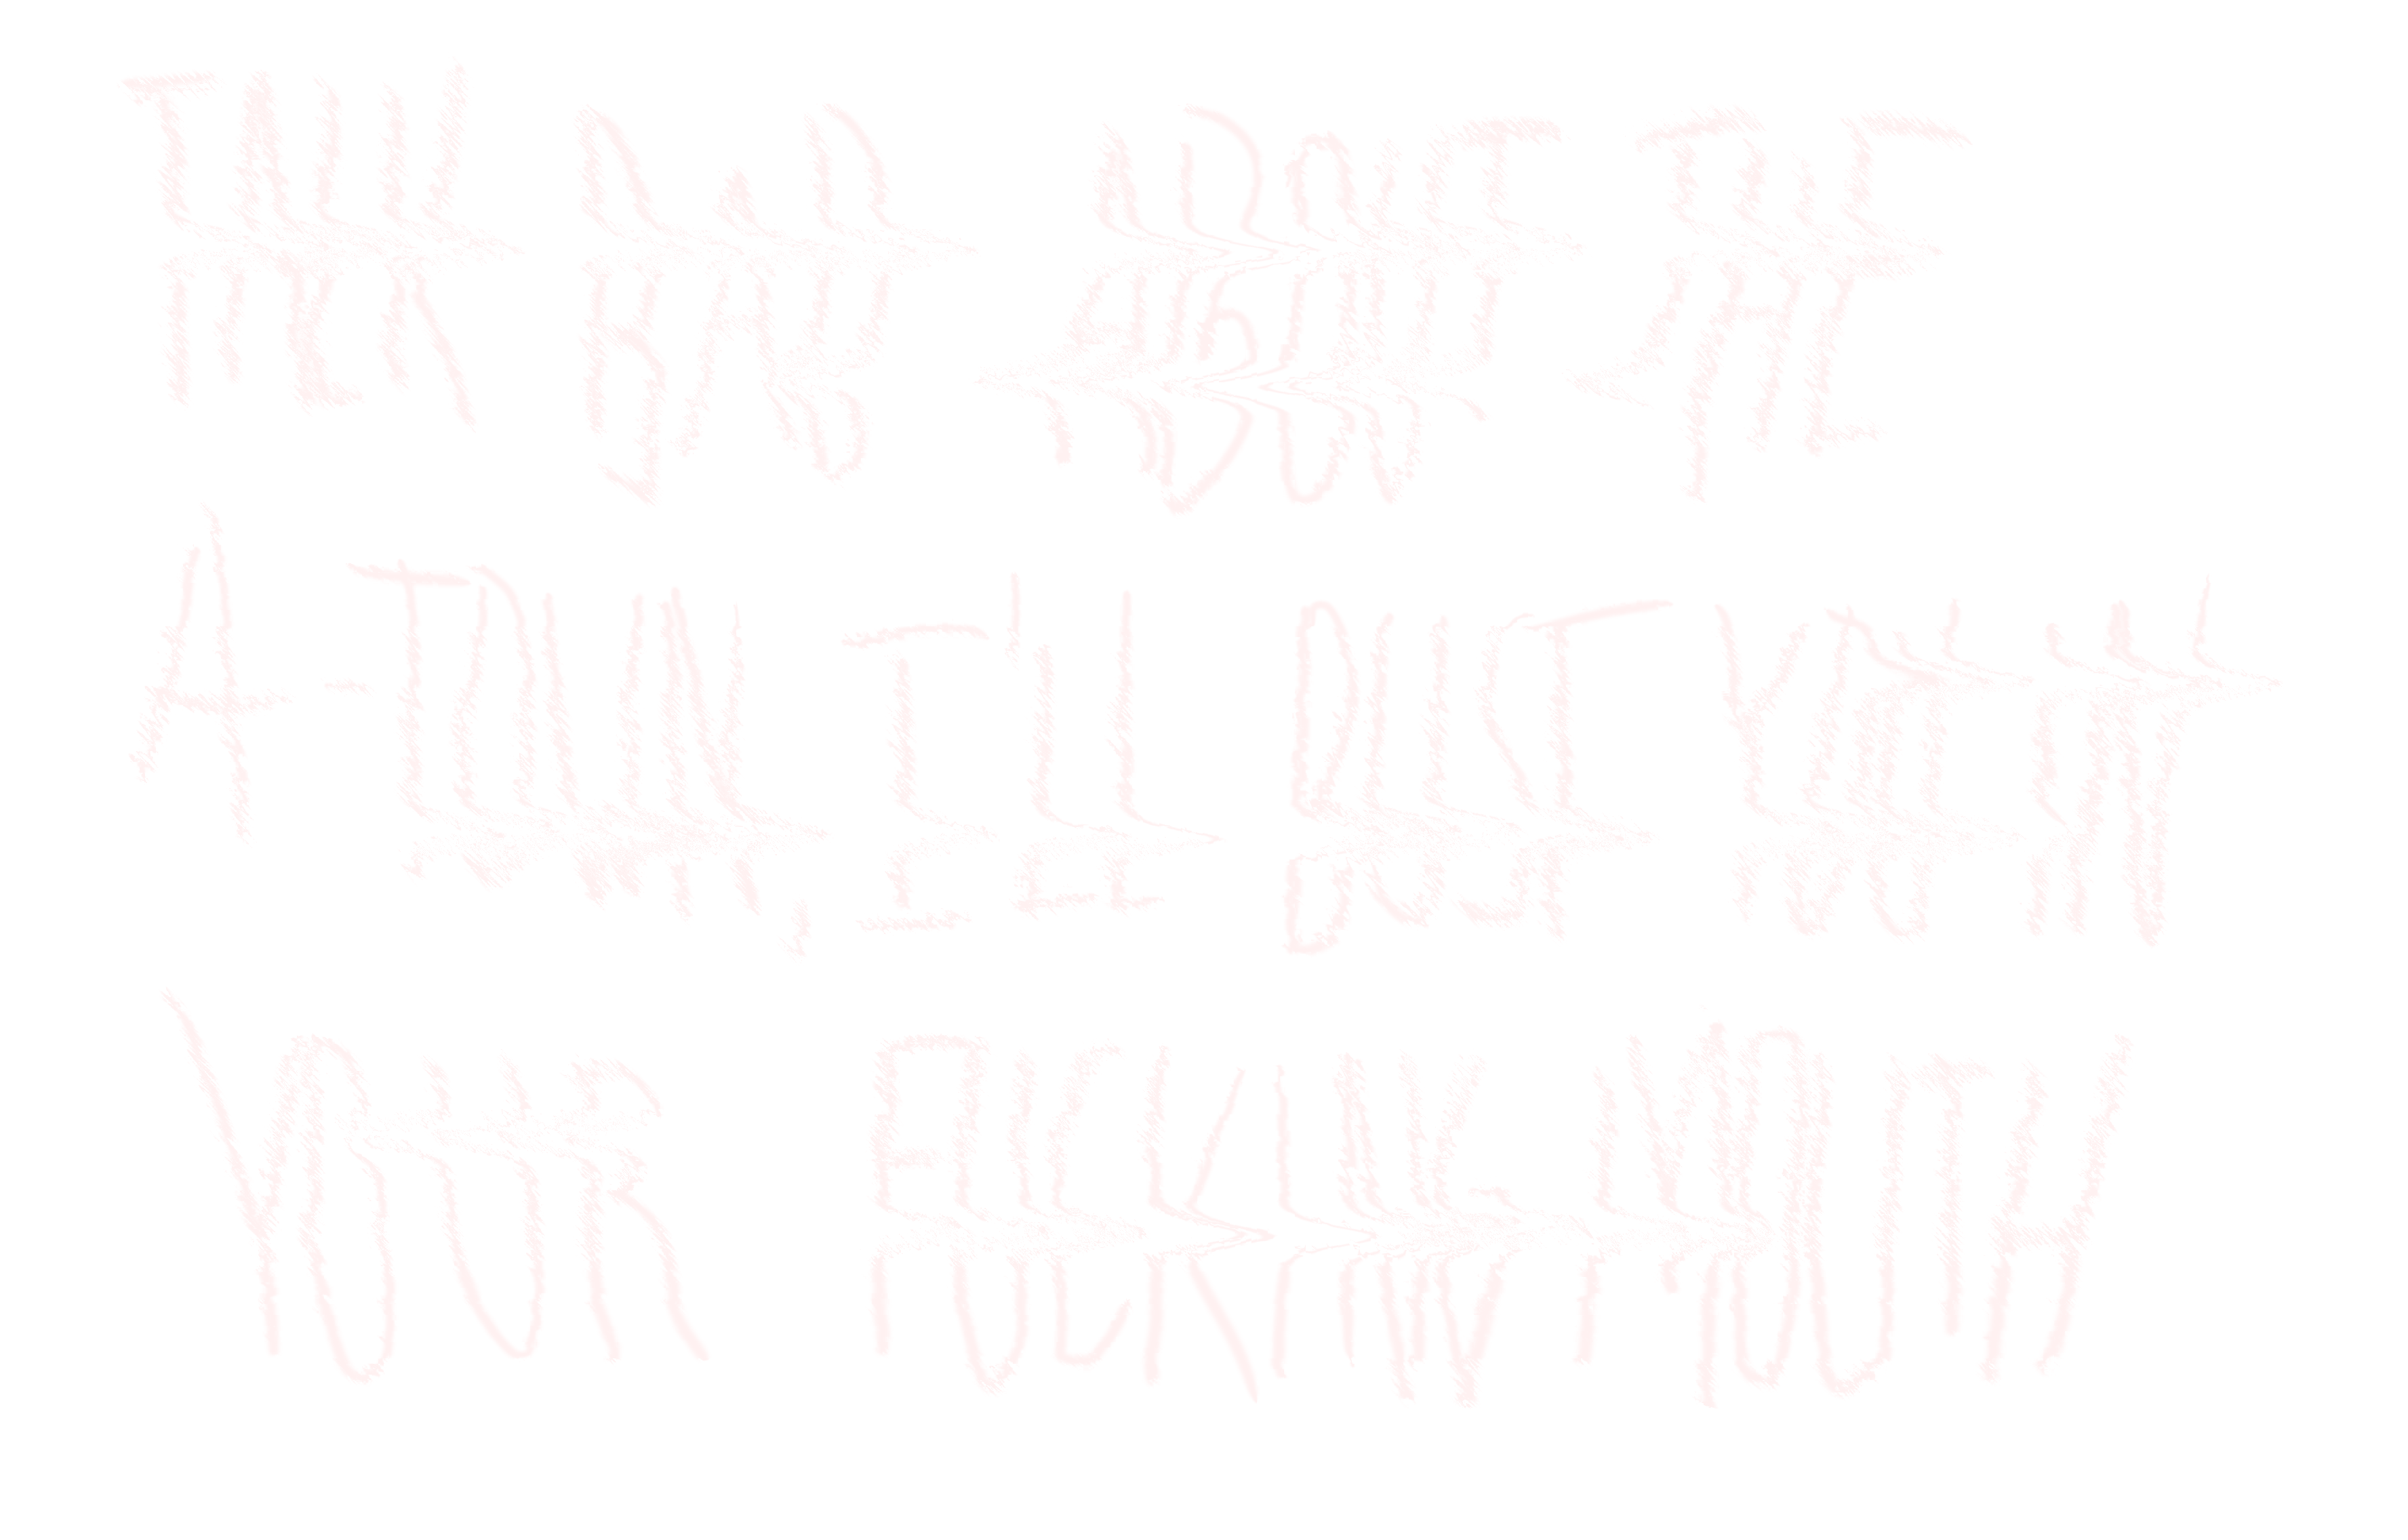 TALK BAD ABOUT THE
A-TOWN, I'LL BUST YOU IN
YOUR FUCKING MOUTH